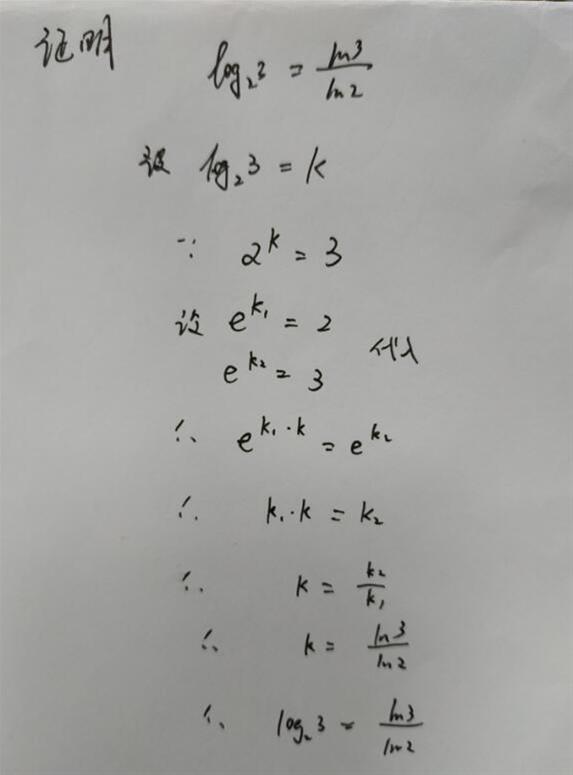 证明 log₂3 = ln3/ln2
设 log₂3 = k
∵ 2^k = 3
设 e^k₁ = 2
e^k₂ = 3 代入
∴ e^k₁·k = e^k₂
∴ k₁·k = k₂
∴ k = k₂/k₁
∴ k = ln3/ln2
∴ log₂3 = ln3/ln2